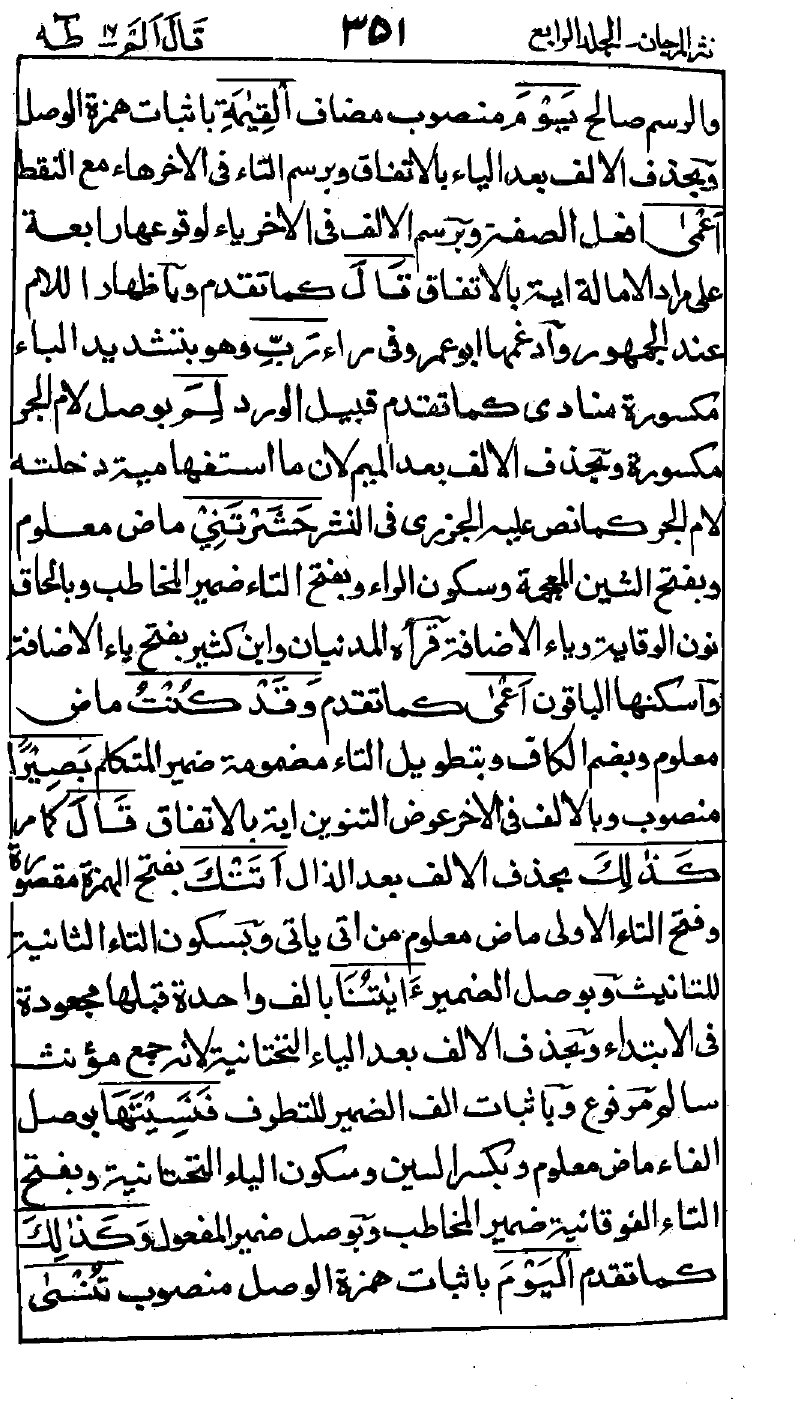 نثر المرجان ـ المجلد الرابع ٣٥١ قَالَ اَلَمْ ١٦ طٰهٰ
والرسم صالح يَوْمَ منصوب مضاف اَلْقِيٰمَةِ باثبات همزة الوصل
وبحذف الالف بعد الياء بالاتفاق وبرسم التاء فى الاخر هاء مع النقط
اَعْمٰى افعل الصفة وبرسم الالف فى الاخر ياء لوقوعها رابعة
على مراد الامالة اية بالاتفاق قَالَ كما تقدم وباظهار اللام
عند الجمهور وادغمها ابو عمرو فى راء رَبِّ وهو بتشديد الباء
مكسورة منادى كما تقدم قبيل الورد لِمَ بوصل لام الجر
مكسورة وبحذف الالف بعد الميم لان ما استفهامية دخلته
لام الجر كما نص عليه الجزرى فى النشر حَشَرْتَنِيْ ماض معلوم
وبفتح الشين المعجمة وسكون الراء وبفتح التاء ضمير المخاطب وبالحاق
نون الوقاية وياء الاضافة قرأه المدنيان وابن كثير بفتح ياء الاضافة
واسكنها الباقون اَعْمٰى كما تقدم وَقَدْ كُنْتُ ماض
معلوم وبضم الكاف وبتطويل التاء مضمومة ضمير المتكلم بَصِيْرًا
منصوب وبالالف فى الاخر عوض التنوين اية بالاتفاق قَالَ كما مر
كَذٰلِكَ بحذف الالف بعد الذال اَتَتْكَ بفتح الهمزة مقصورة
وفتح التاء الاولى ماض معلوم من اتى ياتى وبسكون التاء الثانية
للتانيث وبوصل الضمير ءَايٰتُنَا بالف واحدة قبلها مجعودة
فى الابتداء وبحذف الالف بعد الياء التحتانية لانه جمع مؤنث
سالم مرفوع وباثبات الف الضمير للتطرف فَنَسِيْتَهَا بوصل
الفاء ماض معلوم وبكسر السين وسكون الياء التحتانية وبفتح
التاء الفوقانية ضمير المخاطب وبوصل ضمير المفعول وَكَذٰلِكَ
كما تقدم اَلْيَوْمَ باثبات همزة الوصل منصوب تُنْسٰى